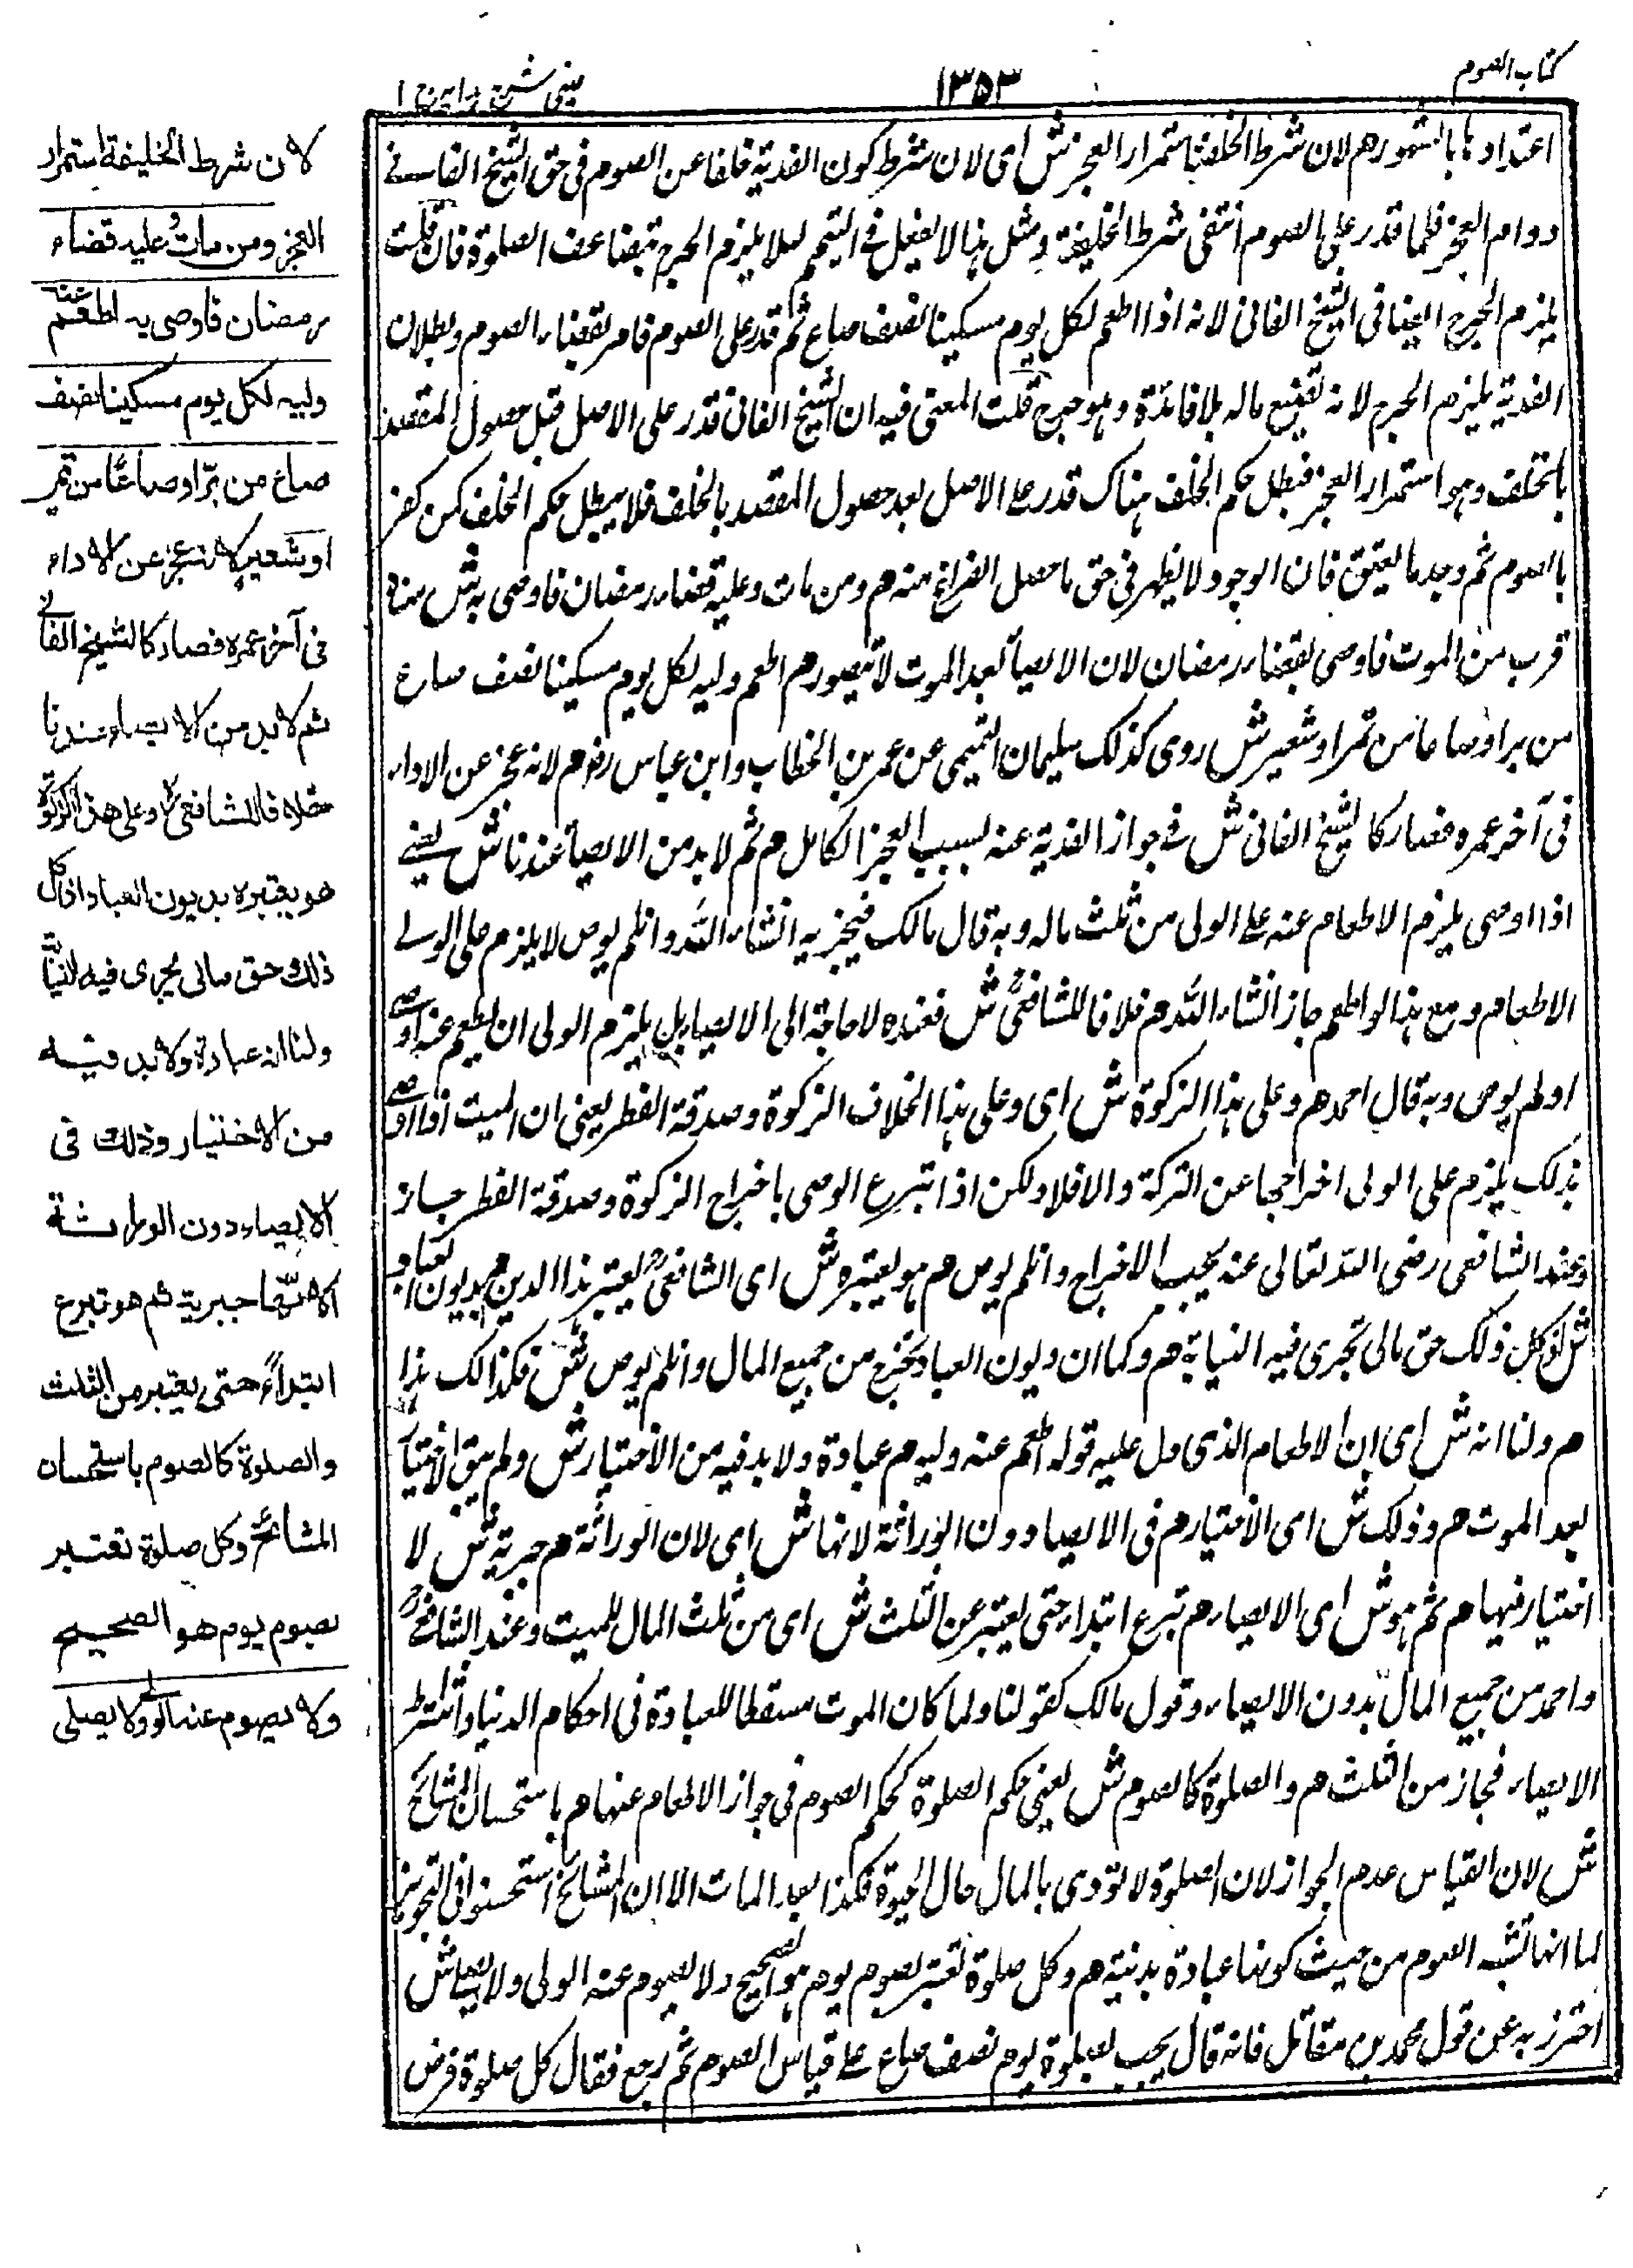 كتاب الصوم
١٣٥٣
عينى شرح هدايه ج ١
اعتدادها بالشهور هم لان شرط الخلفية استمرار العجز ش اى لان شرط كون الفدية خلفا عن الصوم فى حق الشيخ الفانى
دوام العجز فلما قدر على الصوم انتفى شرط الخليفة ومثل هذا لا يفعل فى التيمم لئلا يلزم الحرج بتضاعف الصلوة فان قلت
يلزم الحرج ايضا فى الشيخ الفانى لانه اذا اطعم لكل يوم مسكينا نصف صاع ثم قدر على الصوم فامر بقضاء الصوم وبطلان
الفدية يلزم الحرج لانه تضييع ماله بلا فائدة وهو حرج قلت المعنى فيه ان الشيخ الفانى قدر على الاصل قبل حصول المقصد
بالخلف وهو استمرار العجز فبطل حكم الخلف هناك قدر على الاصل بعد حصول المقصد بالخلف فلا يبطل حكم الخلف كمن كفر
بالصوم ثم وجد ما يعتق فان الوجود لا يظهر فى حق ما حصل الفراغ منه هم ومن مات وعليه قضاء رمضان فاوصى به ش معناه
قرب من الموت فاوصى بقضاء رمضان لان الايصاء بعد الموت لا يتصور هم اطعم وليه لكل يوم مسكينا نصف صاع
من بر او صاعا من تمر او شعير ش روى كذلك سليمان التيمى عن عمر بن الخطاب وابن عباس رضهم لانه عجز عن الاداء
فى آخر عمره فصار كالشيخ الفانى ش فى جواز الفدية عنه بسبب العجز الكامل هم ثم لا بد من الايصاء عندنا ش يعنى
اذا اوصى يلزم الاطعام عنه على الولى من ثلث ماله وبه قال مالك فيجزيه انشاء الله وان لم يوص لا يلزم على الولى
الاطعام ومع هذا لو اطعم جاز انشاء الله هم خلافا للشافعى ش فعنده لا حاجة الى الايصاء بل يلزم الولى ان يطعم عنه اوصى
او لم يوص وبه قال احمد هم وعلى هذا الزكوة ش اى وعلى هذا الخلاف الزكوة وصدقة الفطر يعنى ان الميت اذا اوصى
بذلك يلزم على الولى اخراجها عن التركة والا فلا ولكن اذا تبرع الوصى باخراج الزكوة وصدقة الفطر جاز
وعند الشافعى رضى الله تعالى عنه يجب الاخراج وان لم يوص هم هو يعتبره ش اى الشافعى يعتبر هذا الدين هم بديون العباد
ش اذ كل ذلك حق مالى تجرى فيه النيابة هم وكما ان ديون العباد تخرج من جميع المال وان لم يوص ش فكذلك هذا
هم ولنا انه ش اى ان الاطعام الذى دل عليه قوله اطعم عنه وليه هم عبادة ولا بد فيه من الاختيار ش ولم يبق الاختيار
بعد الموت هم وذلك ش اى الاختيار هم فى الايصاء دون الوراثة لانها ش اى لان الوراثة هم جبرية ش لا
اختيار فيها هم ثم هو ش اى الايصاء هم تبرع ابتداء حتى يعتبر عن الثلث ش اى من ثلث المال للميت وعند الشافعى
واحمد من جميع المال بدون الايصاء وقول مالك كقولنا ولما كان الموت مسقطا للعبادة فى احكام الدنيا واشترط
الايصاء فجاز من الثلث هم والصلوة كالصوم ش يعنى حكم الصلوة كحكم الصوم فى جواز الاطعام عنها هم باستحسان المشائخ
ش لان القياس عدم الجواز لان الصلوة لا تؤدى بالمال حال الحيوة فكذا بعد الممات الا ان المشائخ استحسنوا فى التجويز
لما انها تشبه الصوم من حيث كونها عبادة بدنية هم وكل صلوة تعتبر بصوم يوم هو الصحيح ولا يصوم عنه الولى ولا يصلى ش
احترز به عن قول محمد بن مقاتل فانه قال يجب لصلوة يوم نصف صاع على قياس الصوم ثم رجع فقال كل صلوة فرض
لان شرط الخليفة استمرار
العجز ومن مات وعليه قضاء
رمضان فاوصى به اطعم عنه
وليه لكل يوم مسكينا نصف
صاع من برّ او صاعًا من تمر
او شعير لانه عجز عن الاداء
فى آخر عمره فصار كالشيخ الفانى
ثم لا بد من الايصاء عندنا
خلافا للشافعى وعلى هذا الزكوة
هو يعتبره بديون العباد اذ كل
ذلك حق مالى يجرى فيه النيابة
ولنا انه عبادة ولا بد فيه
من الاختيار وذلك فى
الايصاء دون الوراثة
لانّها جبرية ثم هو تبرع
ابتداءً حتى يعتبر من الثلث
والصلوة كالصوم باستحسان
المشائخ وكل صلوة تعتبر
بصوم يوم هو الصحيح
ولا يصوم عنه الولى ولا يصلى